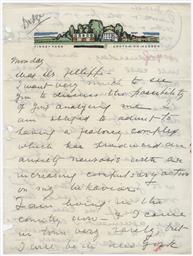 Dodge
FINNEY FARM CROTON-ON-HUDSON
Monday
Dear Dr. Jelliffe -
I want very much to come
in to discuss the possibility
of your analyzing me - I
am obliged to admit to
having a jealousy complex
which has produced an
anxiety neurosis with an
increasing compulsory action
on my behavior!
I am living in the
country now - & I come
in town very rarely, but
I will be in New York